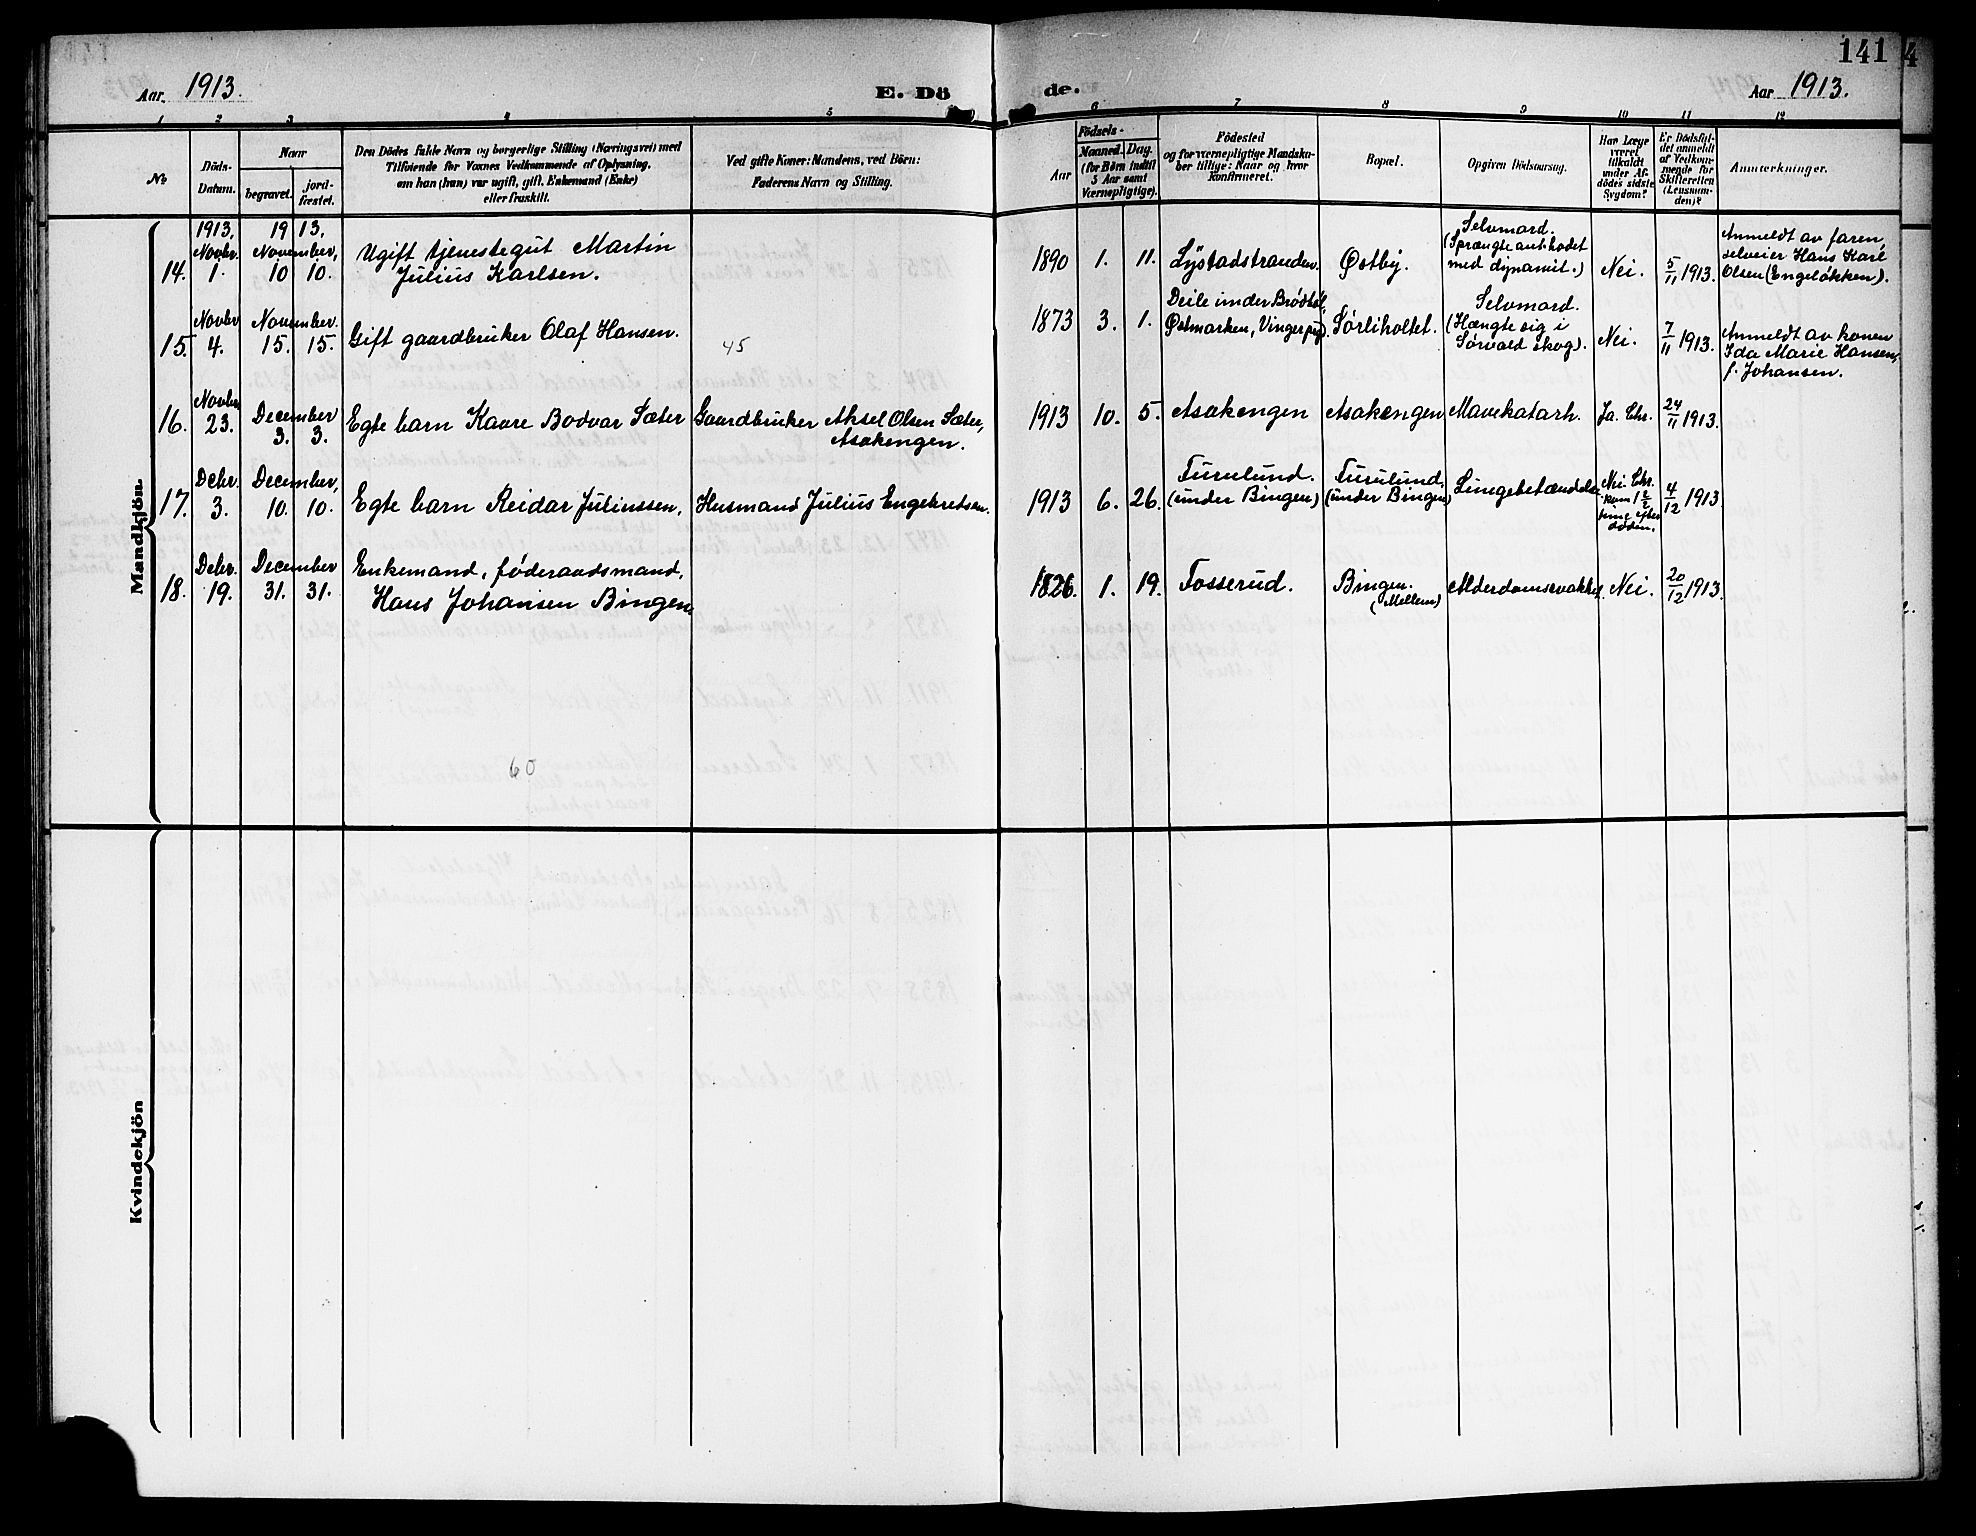 141 4
Aar 1913. E. Dö de. Aar 1913.
1 2 3 4 5 6 7 8 9 10 11 12
№
Döds-
Datum.
Naar
begravet.
jord-
fæstet.
Den Dödes fulde Navn og borgerlige Stilling (Næringsvei) med
Tilföiende for Voxnes Vedkommende af Oplysning,
om han (hun) var ugift, gift, Enkemand (Enke)
eller fraskilt.
Ved gifte Koner: Mandens, ved Börn:
Faderens Navn og Stilling.
Födsels-
Aar
Maaned. Dag.
(for Börn indtil
5 Aar samt
Værnepligtige).
Födested
og for værnepligtige Mandska-
ber tillige: Naar og hvor
konfirmeret.
Bopæl.
Opgiven Dödsaarsag.
Har Læge
været
tilkaldt
under Af-
dödes sidste
Sygdom?
Er Dödsfal-
det anmeldt
af Vedkom-
mende for
Skifteretten
(Lensman-
den)?
Anmærkninger.
Mandkjön.
14.
1913,
Novbr.
1.
1913,
November,
10 10.
Ugift tjenestegut Martin
Julius Karlsen.
1890 1. 11.
Lystadstranden.
Østby.
Selvmord.
(Sprængte antl. hodet
med dynamit.)
Nei.
5/11 1913.
Anmeldt av faren,
selveier Hans Karl
Olsen (Engeløkken).
15.
Novbr
4.
November.
15. 15.
Gift gaardbruker Olaf Hansen.
45
1873 3. 1.
Deile under Brødbøl,
Østmarken, Vinger pgj.
Sørliholtet.
Selvmord.
(Hængte sig i
Sørvald skog).
Nei.
7/11 1913.
Anmeldt av konen
Ida Marie Hansen,
f. Johansen.
16.
Novbr
23.
December
3. 3.
Egte barn Kaare Bodvar Sæter
Gaardbruker Aksel Olsen Sæter,
Asakengen.
1913 10. 5.
Asakengen
Asakengen
Mavekatarh.
Ja. Chr.
24/11 1913.
17.
Debr.
3.
December,
10. 10.
Egte barn Reidar Juliussen,
Husmand Julius Engebretsen.
1913 6. 26.
Furulund.
(under Bingen)
Furulund.
(under Bingen)
Lungebetændelse
Nei Chr.
kom 1 1/2
time efter
døden.
4/12 1913
18.
Debr.
19.
December
31. 31.
Enkemand, føderaadsmand,
Hans Johansen Bingen,
1826. 1. 19.
Fosserud.
Bingen.
(Mellem)
Alderdomssvakhet.
Nei.
20/12 1913.
60
Kvindekjön